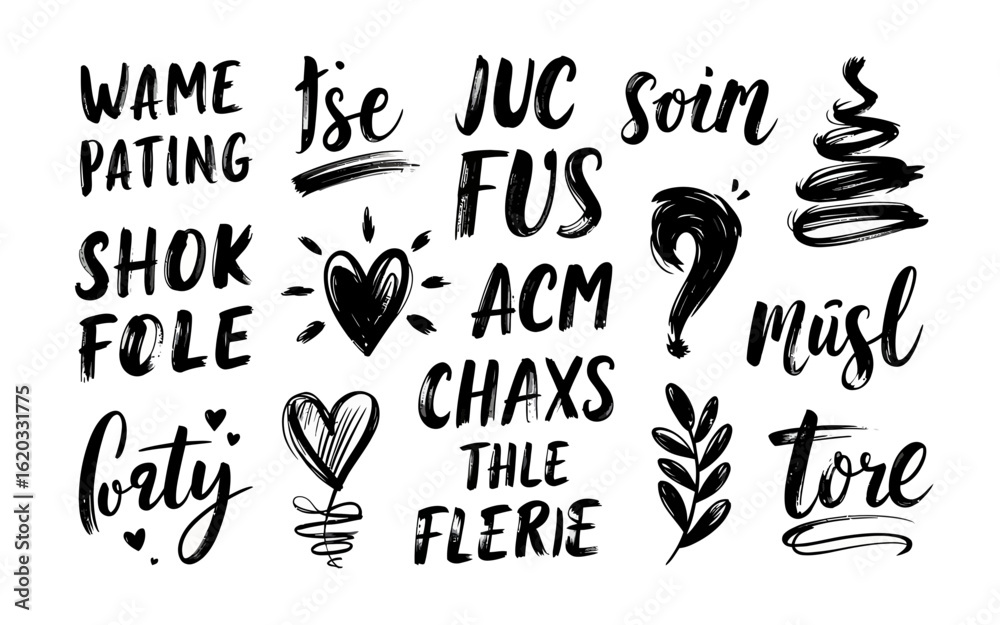 WAME
PATING
SHOK
FOLE
tse
JUC
FUS
ACM
CHAXS
THLE
FLERIE
soim
mūsl
tore
Adobe Stock | #1620331775